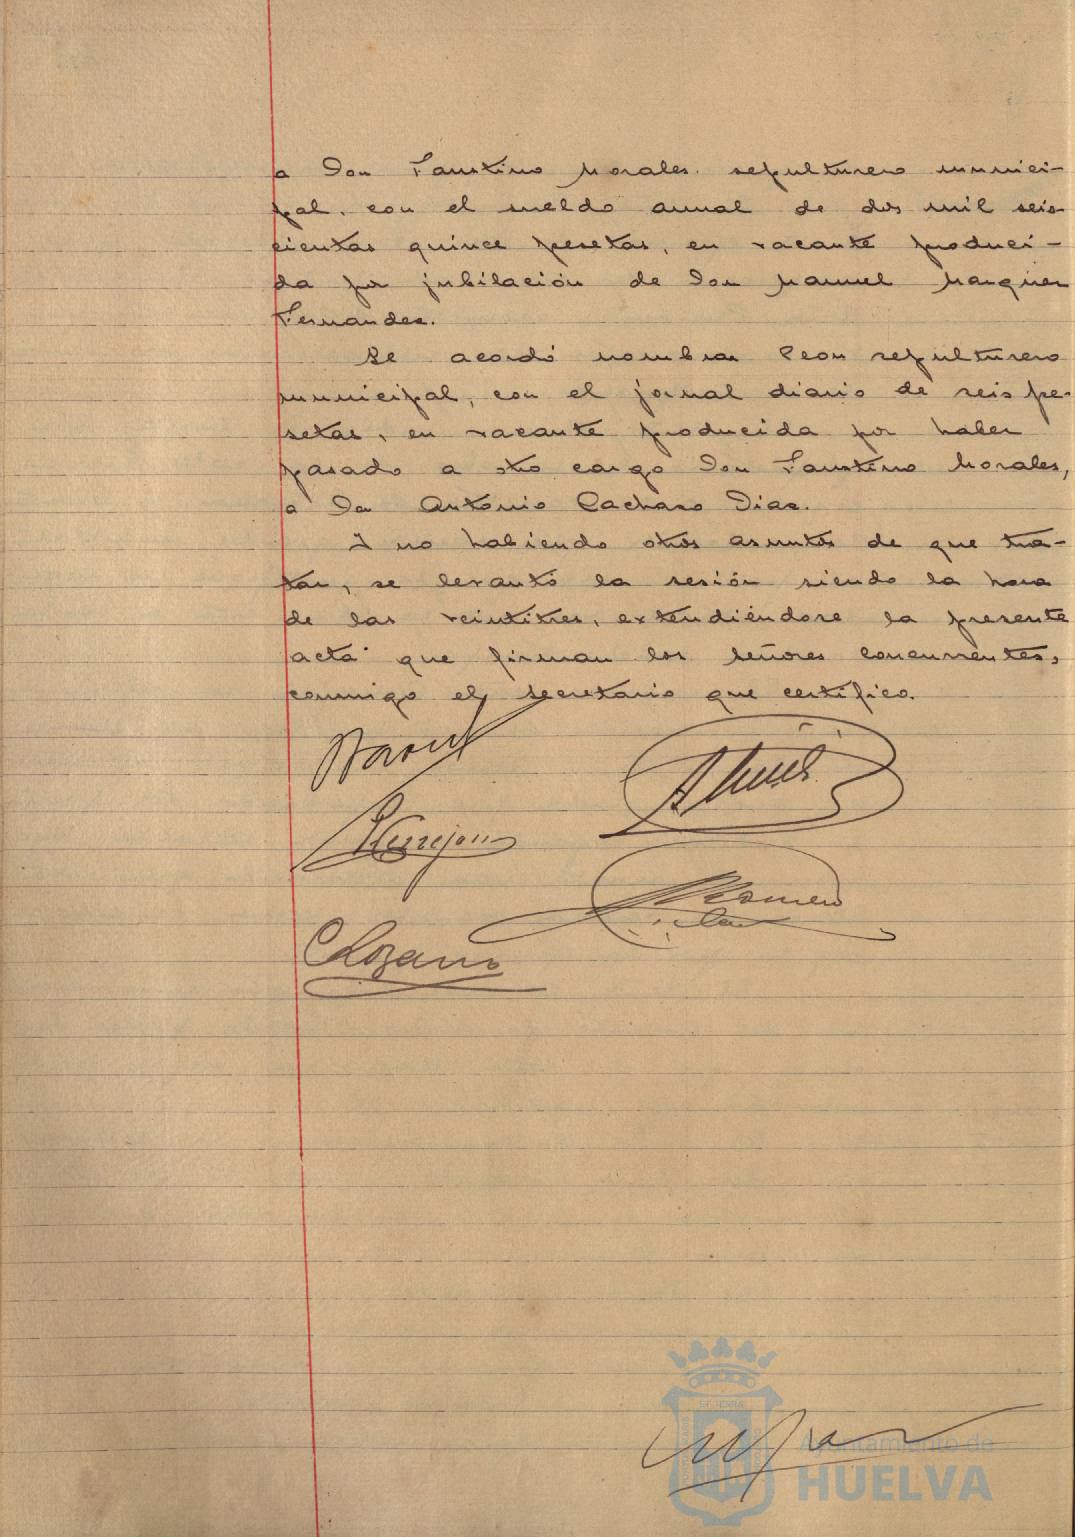 a Don Faustino Morales sepulturero munici-
pal, con el sueldo anual de dos mil seis
cientas quince pesetas, en vacante produci-
da por jubilación de Don Manuel Marquez
Fernandez.
Se acordó nombrar Peon sepulturero
municipal, con el jornal diario de seis pe-
setas, en vacante producida por haber
pasado a otro cargo Don Faustino Morales,
a Don Antonio Cachazo Diaz.
Y no habiendo otros asuntos de que tra-
tar, se levantó la sesión siendo la hora
de las veintitres, extendiéndose la presente
acta que firman los señores concurrentes,
conmigo el Secretario que certifico.
Lozano
Romero
Ayuntamiento de
HUELVA